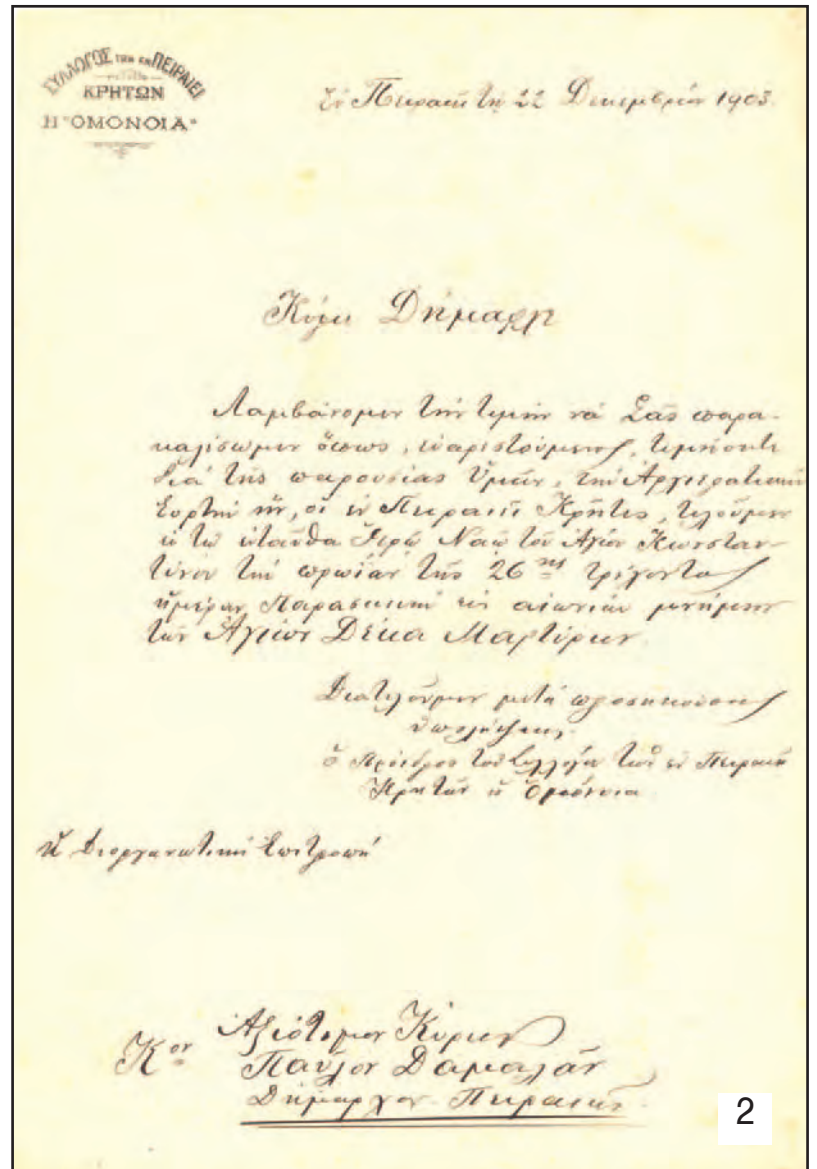 ΣΥΛΛΟΓΟΣ ΤΩΝ ΕΝ ΠΕΙΡΑΙΕΙ
ΚΡΗΤΩΝ
Η "ΟΜΟΝΟΙΑ"
Ἐν Πειραιεῖ τῇ 22 Δεκεμβρίου 1903.
Κύριε Δήμαρχε
Λαμβάνομεν τὴν τιμὴν νὰ Σᾶς παρα-
καλέσωμεν ὅπως, εὐαρεστούμενος, τιμήσητε
διὰ τῆς παρουσίας Ὑμῶν, τὴν Ἀρχιερατικὴν
Ἑορτὴν ἣν, οἱ ἐν Πειραιεῖ Κρῆτες, τελοῦμεν
ἐν τῷ ἐνταῦθα Ἱερῷ Ναῷ τοῦ Ἁγίου Κωνσταν-
τίνου τὴν πρωΐαν τῆς 26ης τρέχοντος
ἡμέραν Παρασκευὴν εἰς αἰωνίαν μνήμην
τῶν Ἁγίων Δέκα Μαρτύρων.
Διατελοῦμεν μετὰ προσηκούσης
ὑπολήψεως.
ὁ Πρόεδρος τοῦ Συλλόγου τῶν ἐν Πειραιεῖ
Κρητῶν ἡ Ὁμόνοια
ἡ Διοργανωτικὴ Ἐπιτροπὴ
Ἀξιότιμον Κύριον
Κον Παῦλον Δαμαλᾶν
Δήμαρχον Πειραιῶς.
2